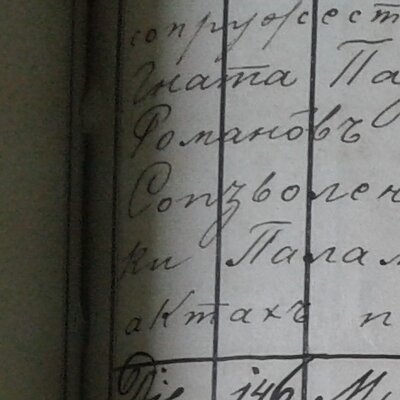 сопружест
Игната Па
Романовъ
Сопзволен
ки Палал
актахъ п
Die 146 Mu